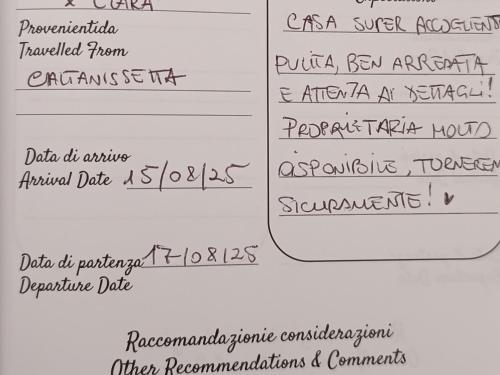 & CLARA
Provenientida
Travelled From
CALTANISSETTA
Data di arrivo
Arrival Date 15/08/25
Data di partenza 17/08/25
Departure Date
CASA SUPER ACCOGLIENT
PULITA, BEN ARREDATA
E ATTENTA AI DETTAGLI!
PROPRIETARIA MOLTO
DISPONIBILE, TORNEREM
SICURAMENTE! ♥
Raccomandazionie considerazioni
Other Recommendations & Comments